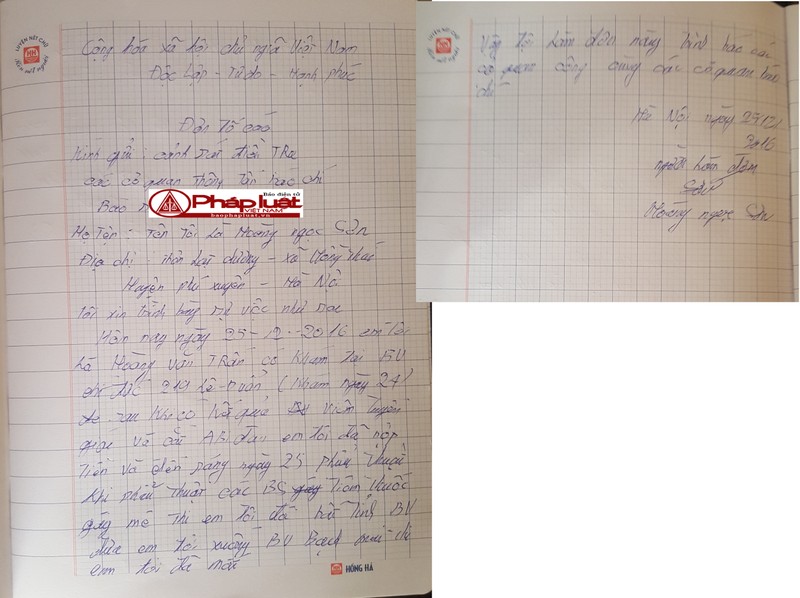 LUYỆN NÉT CHỮ
Rèn nết người
Cộng hóa xã hội chủ nghĩa Việt Nam
Độc Lập - Tự do - Hạnh phúc
Đơn Tố cáo
Kính gửi : cảnh sát điều TRa
các cơ quan Thông Tấn báo chí
Báo
Báo điện tử
Pháp luật
VIỆT NAM
baophapluat.vn
Họ Tên : Tên Tôi Là Hoàng ngọc Sơn
Địa chỉ : Thôn - xã Hồng Thái
Huyện phú xuyên - Hà Nội
Tôi xin trình bày sự việc như sau
Hôm nay ngày 25-12-2016 em tôi
Là Hoàng Văn TRấn có Khám Tại BV
219 Lê Duẩn ( Khám ngày 24)
sau khi có kết quả viêm
và cắt em tôi đã nộp
Tiền và đến sáng ngày 25 phẫu thuật
Khi phẫu thuật các BS Tiêm thuốc
gây mê Thì em tôi đã bất Tỉnh BV
đưa em tôi xuống BV Bạch mai thì
em tôi đã mất
HỒNG HÀ
Vậy tôi Làm đơn này trình báo các
cơ quan công cùng các cơ quan báo
chí
Hà Nội ngày 25/12/
2016
người Làm đơn
Sơn
Hoàng ngọc Sơn